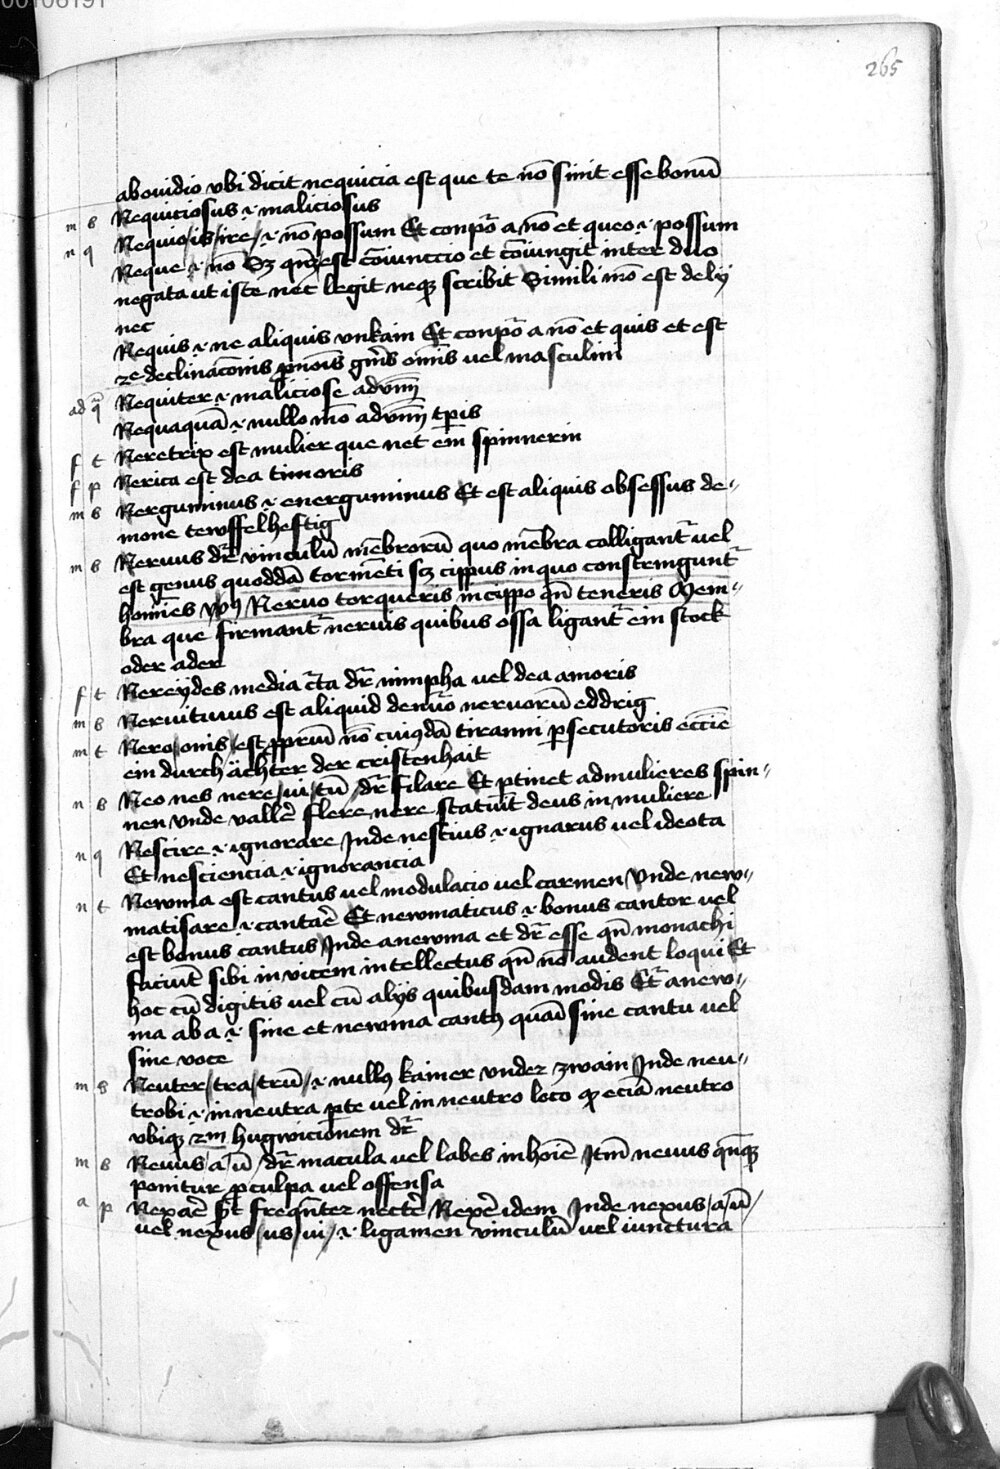 00106191
265
ab ouidio vbi dicit nequicia est que te nō sinit esse bonū
m s Nequiciosus .i. maliciosus
n q Nequio / is / ire / .i. nō possum Et conpōr a nō et queo .i. possum
Neque .i. nō Sz qn̄z est cōiunccio et cōiungit inter duo
negata ut iste nec legit neqz scribit Simili mō est de ly
nec
Nequis .i. ne aliquis vnkain Et conpōr a nō et quis et est
2e declinacōnis pnoīs gn̄is om̄is vel masculini
ad q̄ Nequiter .i. maliciose adv̄m
Nequaquā .i. nullo mō adv̄m tpis
f t Neretrix est mulier que net ein spinnerin
f p Nerica est dea timoris
m s Nerguminus .i. energuminus Et est aliquis obsessus de-
mone tewffelhefftig
m s Neruus dr̄ vinculū mēbrorū quo mēbra colligant̄ vel
est genus quoddā tormēti sz cippus in quo constringunt̄
hoīnes Nervo torqueris in cippo qn̄ teneris Mem-
bra que firmant̄ neruis quibus ossa ligant̄ ein stock
oder ader
f t Nereydes media c̄ta dr̄ nimpha vel dea amoris
m s Neruitiuus est aliquid neruorū eddrig
m t Nero / onis / est ppriū nō cuiusdā tiranni psecutoris eccīe
ein durch ächter der cristenhait
n s Neo nes nere / ui / tū / dr̄ filare Et ptinet ad mulieres spin-
nen vnde fallē flere nere statuit deus in muliere
n q Nescire .i. ignorare Inde nescius .i. ignarus vel ideota
Et nesciencia .i. ignorancia
n t Newma est cantus vel modulacio vel carmen Vnde new-
matisare .i. cantaē Et newmaticus .i. bonus cantor vel
est bonus cantus Inde a newma et dr̄ esse qn̄ monachi
faciūt sibi invicem intellectus qn̄ nō audent loqui Et
hoc cū digitis vel cū alijs quibusdam modis Et a new-
ma ab a .i. sine et newma cantus quasi sine cantu vel
sine voce
m s Neuter / tra / trū / .i. nullus kainer vnder zwain Inde neu-
trobi .i. in neutra pte vel in neutro loco eciā neutro
vbiqz 2m hugwicionem dr̄
m s Neuus / a / ū / dr̄ macula vel labes in hoīe Itm̄ neuus qn̄qz
ponitur p culpa vel offensa
a p Nexaē frequēter nectē Nexē idem Inde nexus / a / ū /
vel nexus / us / ui / .i. ligamen vinculū vel iunctura